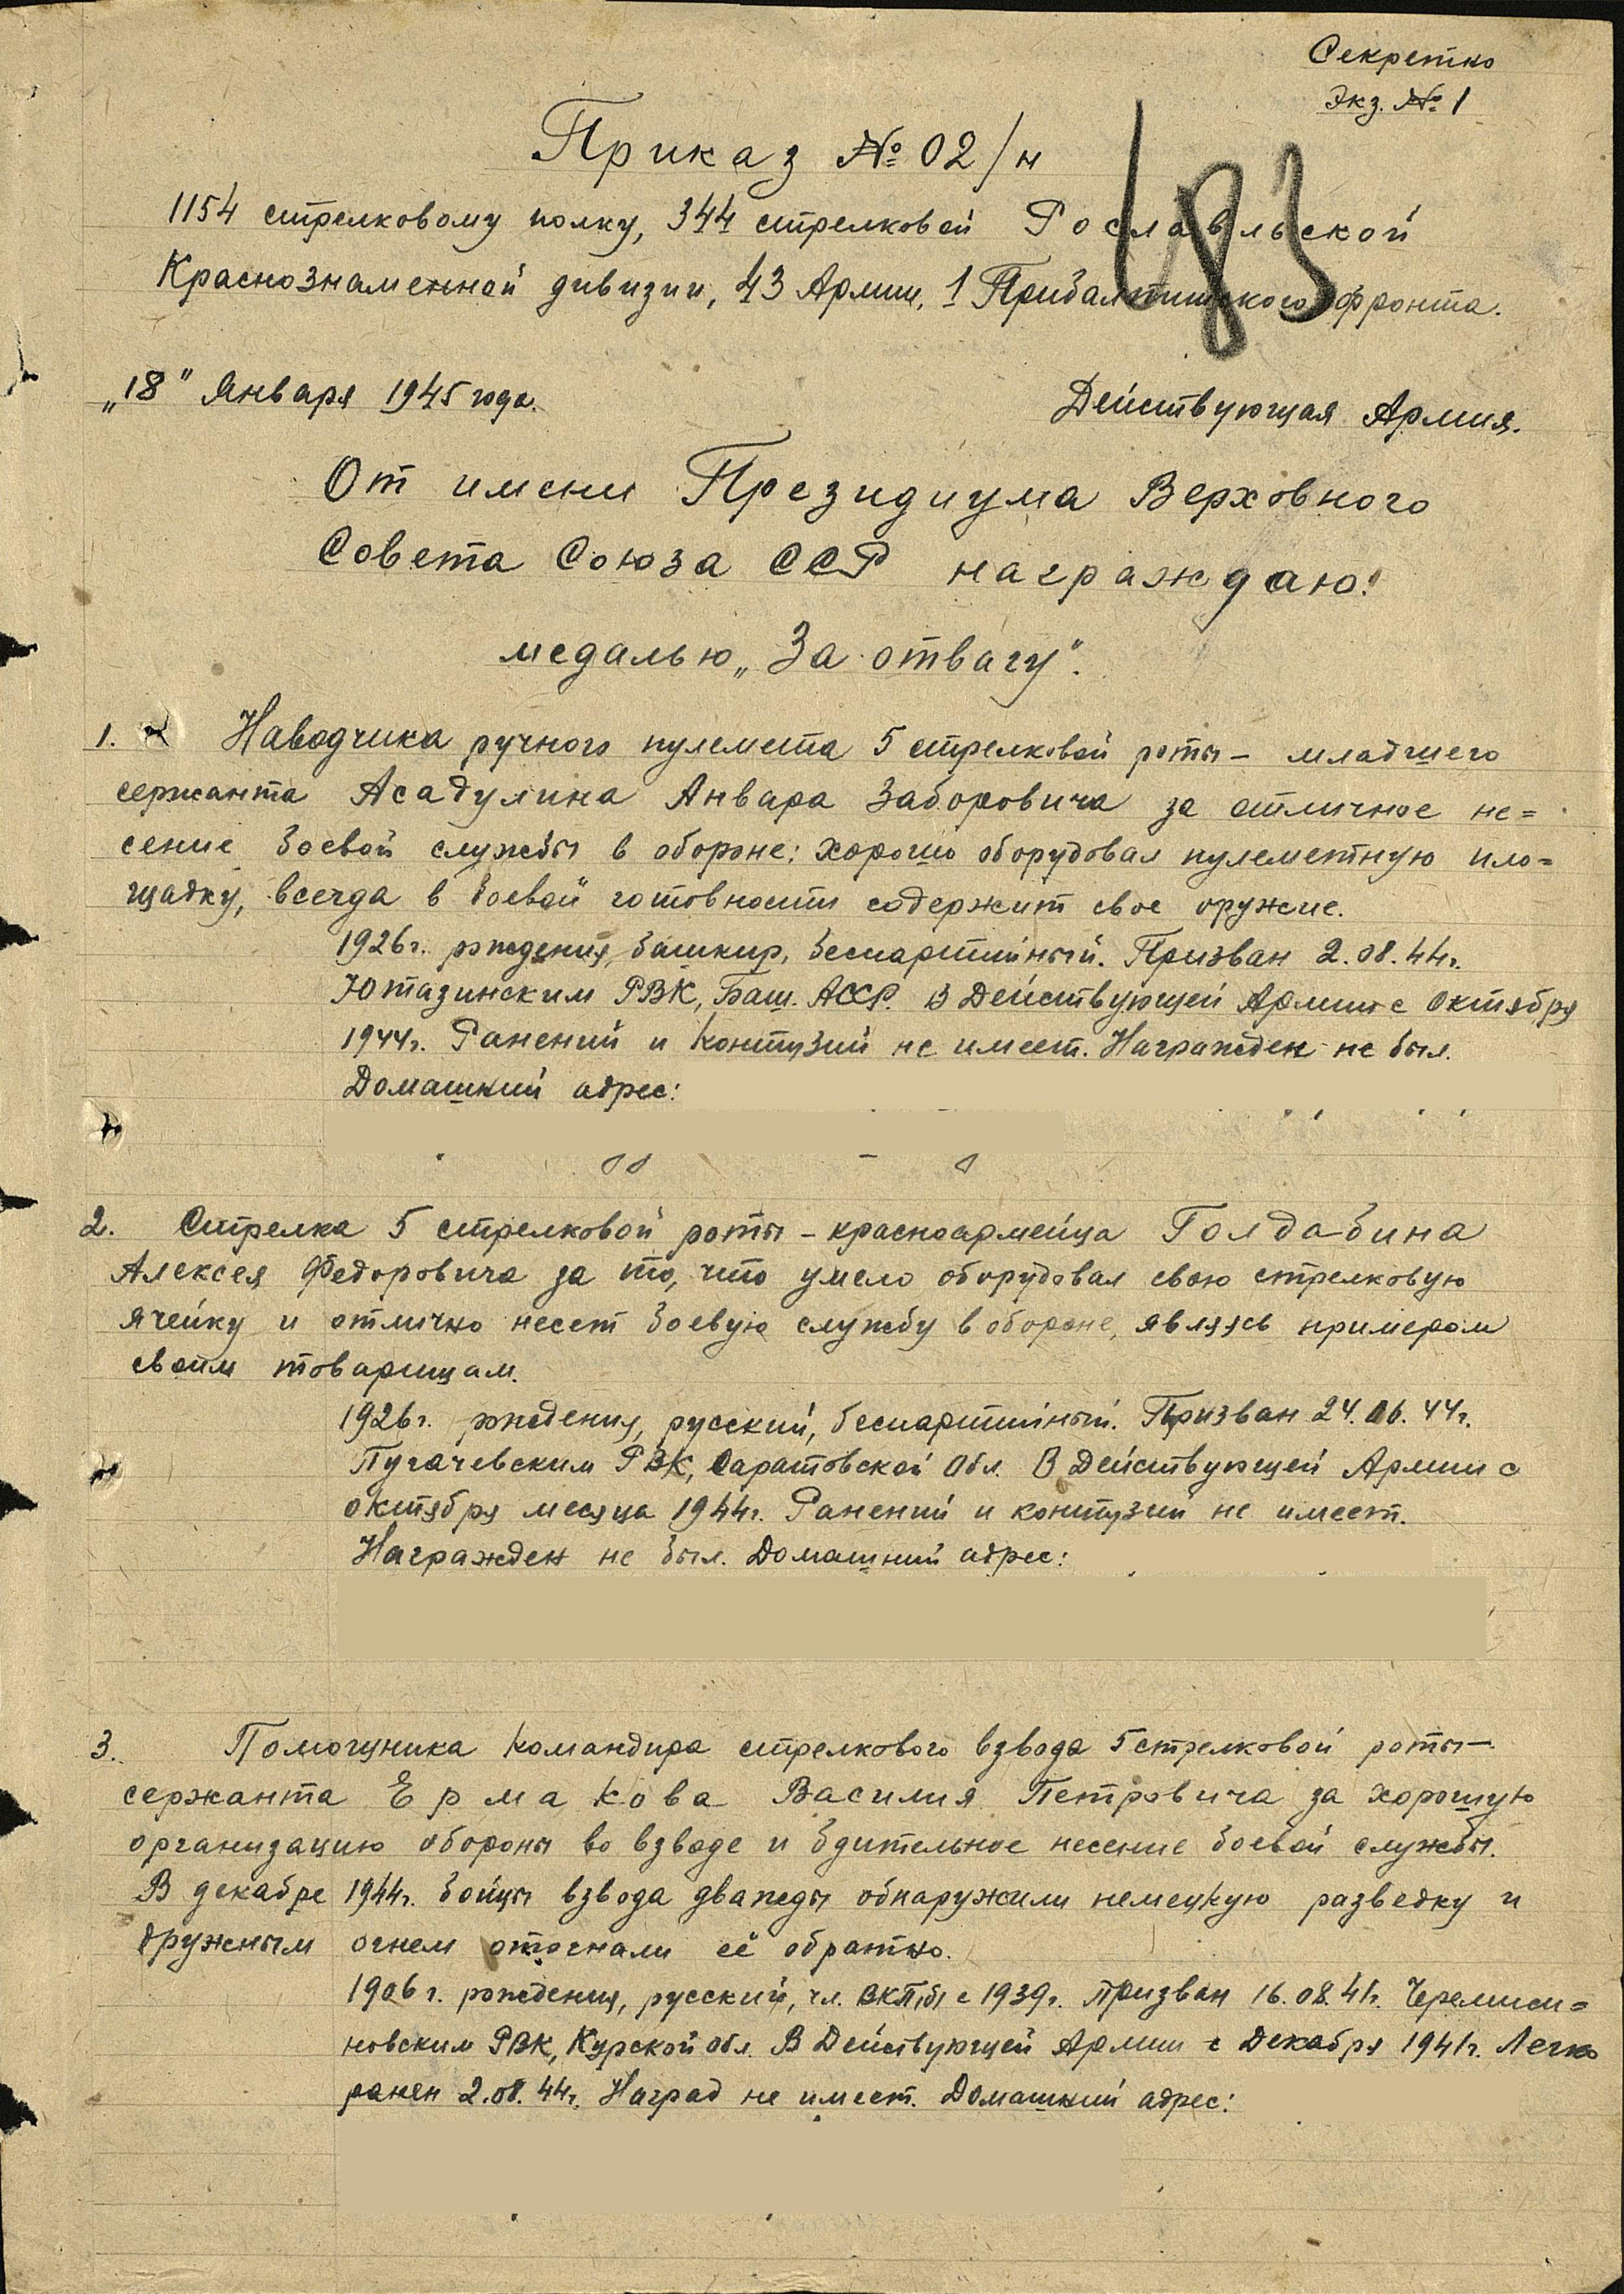 Секретно
Экз. № 1
Приказ № 02/н
183
1154 стрелковому полку, 344 стрелковой Рославльской
Краснознаменной дивизии, 43 Армии, 1 Прибалтийского фронта.
„18" Января 1945 года.
Действующая Армия.
От имени Президиума Верховного
Совета Союза ССР награждаю:
медалью „За отвагу".
1. Наводчика ручного пулемета 5 стрелковой роты – младшего
сержанта Асадулина Анвара Заборовича за отличное не=
сение боевой службы в обороне: хорошо оборудовал пулеметную пло=
щадку, всегда в боевой готовности содержит свое оружие.
1926г. рождения, башкир, беспартийный. Призван 2.08.44г.
Ютазинским РВК, Баш. АССР. В Действующей Армии с Октября
1944г. Ранений и контузий не имеет. Награжден не был.
Домашний адрес:
2. Стрелка 5 стрелковой роты – красноармейца Голдабина
Алексея Федоровича за то, что умело оборудовал свою стрелковую
ячейку и отлично несет боевую службу в обороне, являясь примером
своим товарищам.
1926г. рождения, русский, беспартийный. Призван 24.06.44г.
Пугачевским РВК, Саратовской Обл. В Действующей Армии с
октября месяца 1944г. Ранений и контузий не имеет.
Награжден не был. Домашний адрес:
3. Помощника командира стрелкового взвода 5 стрелковой роты –
сержанта Ермакова Василия Петровича за хорошую
организацию обороны во взводе и бдительное несение боевой службы.
В декабре 1944г. бойцы взвода дважды обнаружили немецкую разведку и
дружным огнем отогнали её обратно.
1906г. рождения, русский, чл. ВКП(б) с 1939г. Призван 16.08.41г. Черемиси=
новским РВК, Курской обл. В Действующей Армии с Декабря 1941г. Легко
ранен 2.08.44г. Наград не имеет. Домашний адрес: